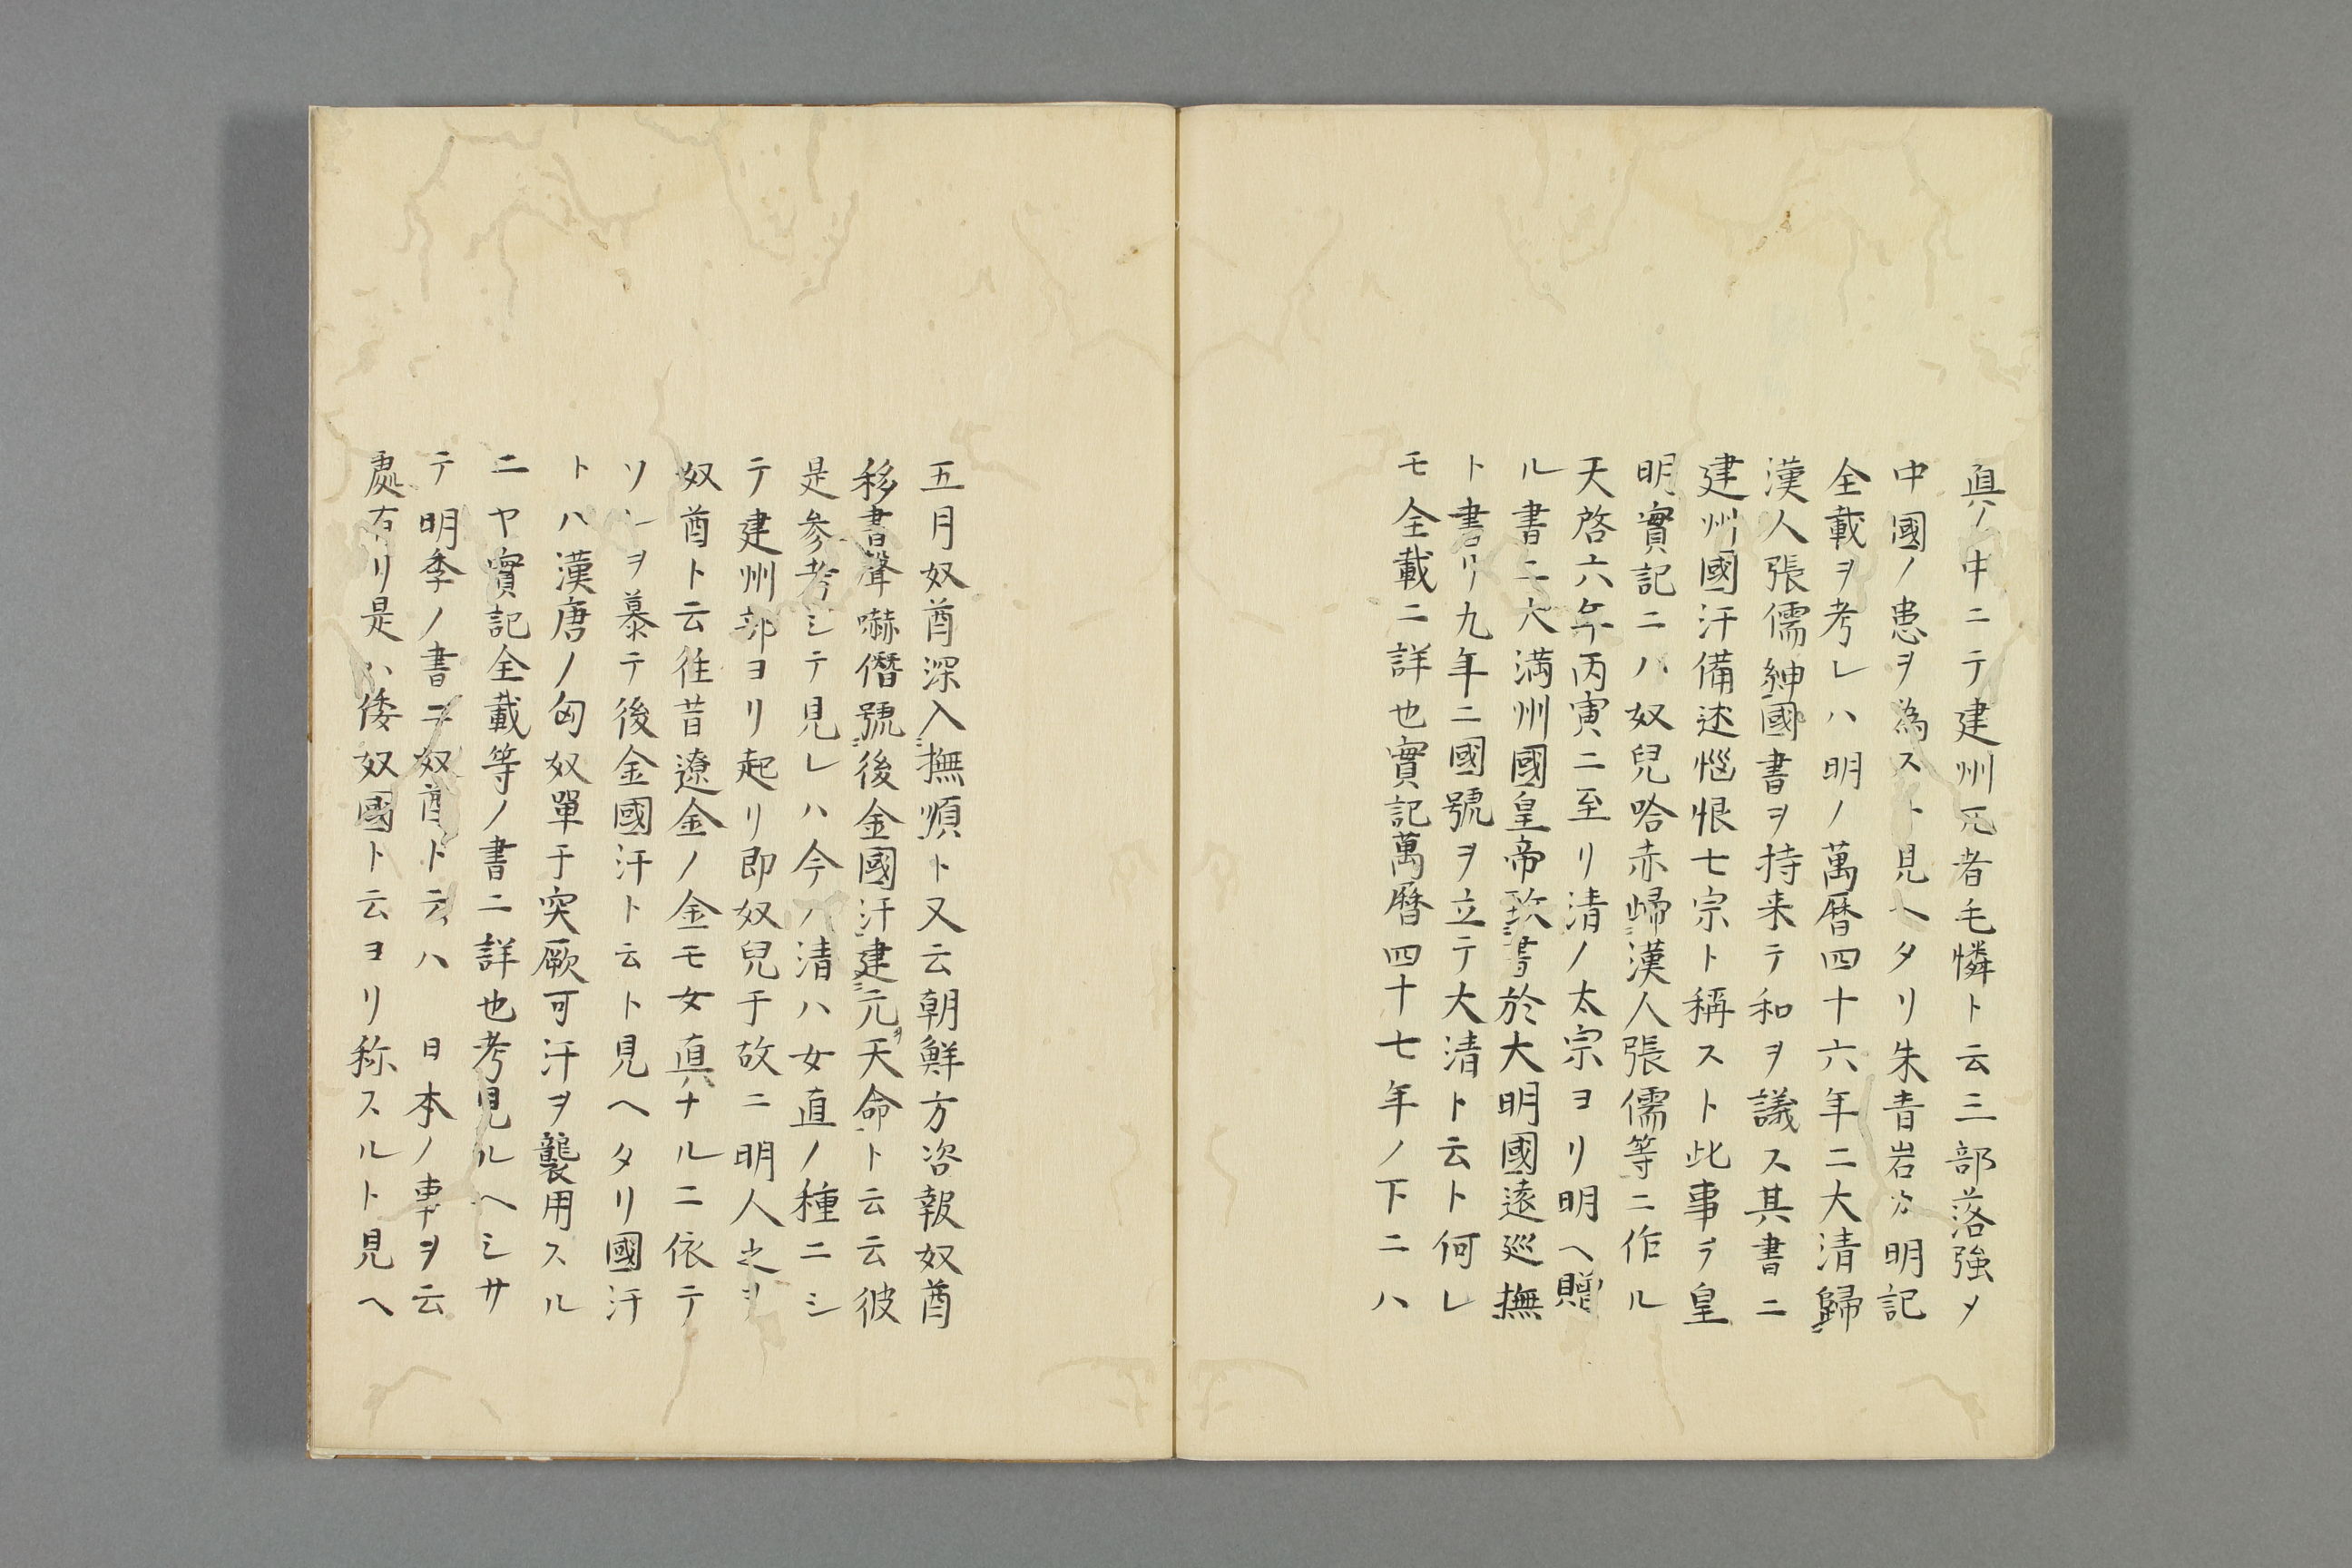 真ノ中ニテ建州兀者毛憐ト云三部落強メ
中國ノ患ヲ為スト見ヘタリ朱青岩カ明記
全載ヲ考レハ明ノ萬暦四十六年ニ大清歸
漢人張儒紳國書ヲ持来テ和ヲ議ス其書ニ
建州國汗備述惱恨七宗ト稱スト此事ヲ皇
明實記ニハ奴兒哈赤帰漢人張儒等ニ作ル
天啓六年丙寅ニ至リ清ノ太宗ヨリ明ヘ贈
ル書ニ大満州國皇帝致書於大明國遠巡撫
ト書リ九年ニ國號ヲ立テ大清ト云ト何レ
モ全載ニ詳也實記萬暦四十七年ノ下ニハ
五月奴酋深入撫順ト又云朝鮮方咨報奴酋
移書聲嚇僭號後金國汗建元天命ト云云彼
是参考シテ見レハ今ノ清ハ女直ノ種ニシ
テ建州部ヨリ起リ即奴兒于故ニ明人之ヲ
奴酋ト云往昔遼金ノ金モ女真ナルニ依テ
ソレヲ慕テ後金國汗ト云ト見ヘタリ國汗
トハ漢唐ノ匈奴單于突厥可汗ヲ襲用スル
ニヤ實記全載等ノ書ニ詳也考見ルヘシサ
テ明季ノ書ニ奴酋ト云ハ 日本ノ事ヲ云
處有リ是ハ倭奴國ト云ヨリ称スルト見ヘ